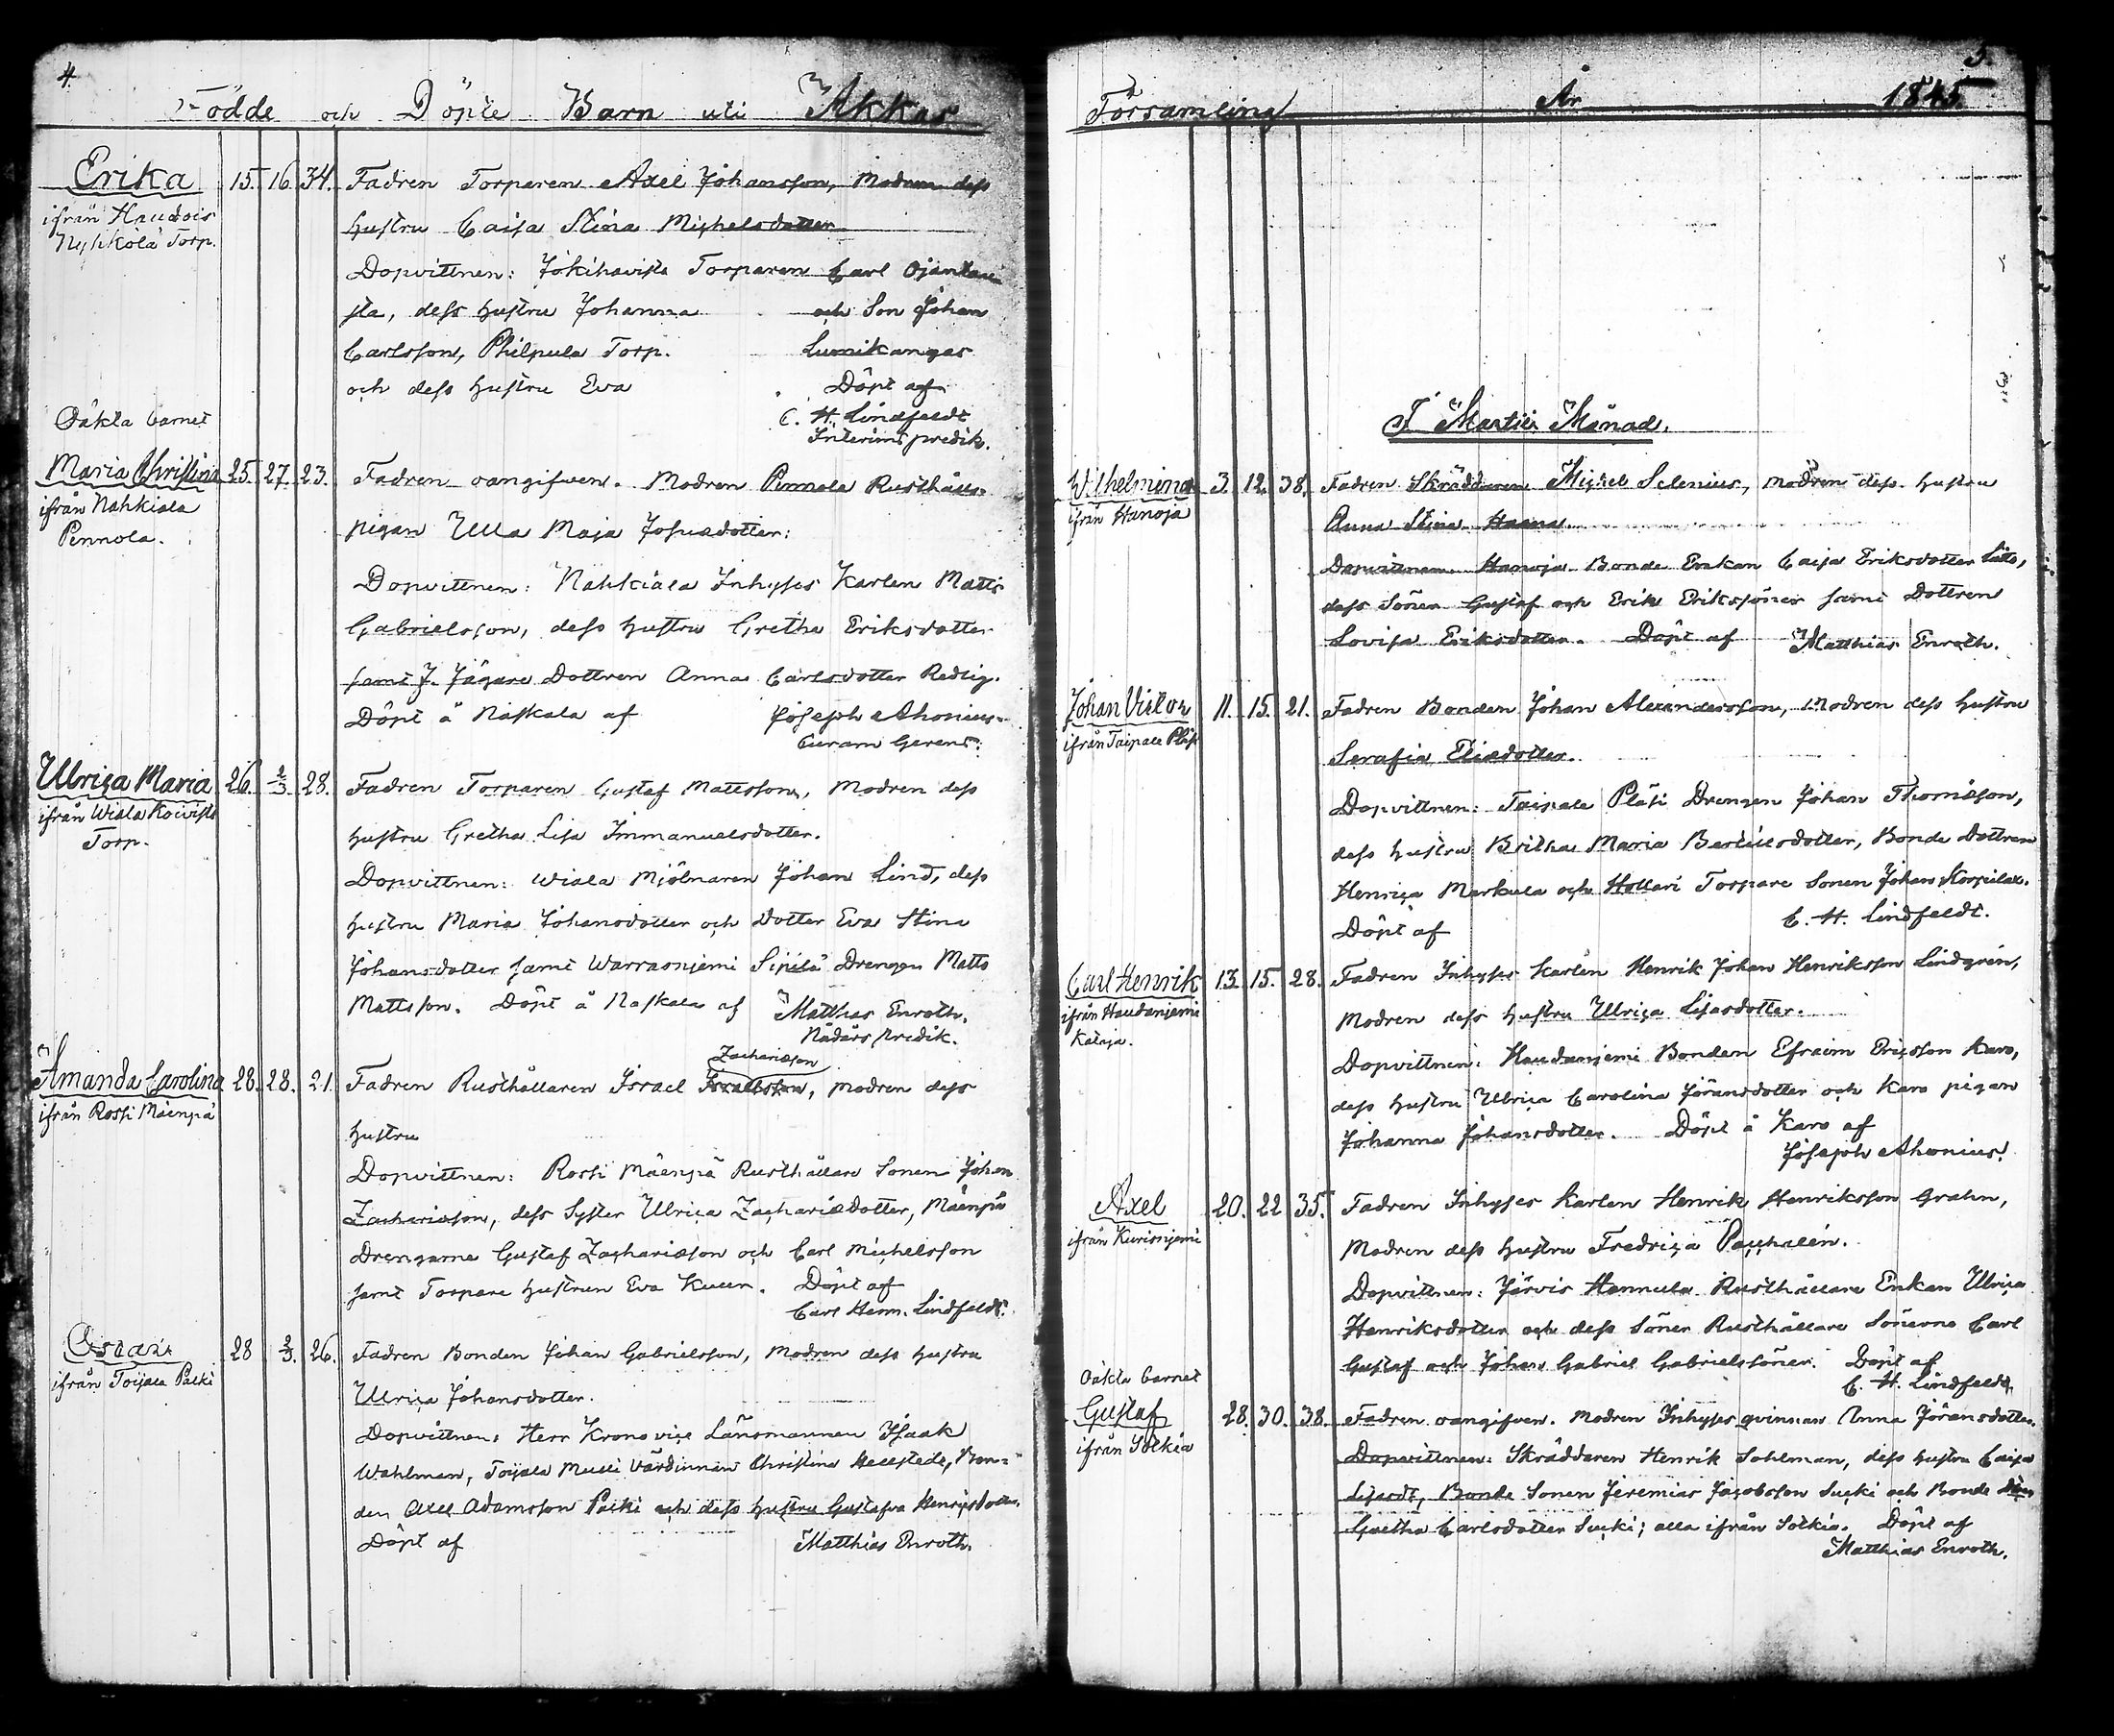 4.
Födde och Döpte Barn uti Akkas
Erika 15. 16. 34. Fadren Torparen Axel Johansson, Modren dess
ifrån Haudois hustru Caisa Stina Michelsdotter
Nypkölä Torp.
Dopvittnen: Jokihavista Torparen Carl Ojanlau
sta, dess hustru Johanna och Son Johan
Carlsson, Philpula Torp. Lumikangas
och dess hustru Eva Döpt af
C. H. Lindfeldt
Interims predik.
Oäkta barnet
Maria Christina 25. 27. 23. Fadren oangifven. Modren Pennola Rusthålls-
ifrån Nahkiala
Pennola. pigan Ulla Maja Josuædotter:
Dopvittnen: Nahkiala Inhyses Karlen Matts
Gabrielsson, dess hustru Gretha Eriksdotter
samt f. Jägare Dottren Anna Carlsdotter Redlig.
Döpt å Naskala af Joseph Ahonius.
Curam Gerens:
Ulrica Maria 26. 2/3. 28. Fadren Torparen Gustaf Mattsson, Modren dess
ifrån Wiala Koivisto
Torp. hustru Gretha Lisa Immanuelsdotter.
Dopvittnen: Wiala Mjölnaren Johan Lind, dess
hustru Maria Johansdotter och Dotter Eva Stina
Johansdotter samt Warrasniemi Sipilä Drengen Matts
Mattsson. Döpt å Naskala af Matthias Enroth.
Nådårs predik.
Zachariæson
Amanda Carolina 28. 28. 21. Fadren Rusthållaren Israel Israelsson, modren dess
ifrån Rossi Mäenpä
hustru
Dopvittnen: Rossi Mäenpä Rusthållare Sonen Johan
Zachariæson, dess Syster Ulrica Zachariædotter, Mäenpä
Drengarne Gustaf Zachariæson och Carl Michelsson
samt Torpare hustrun Eva Kuur. Döpt af
Carl Henr. Lindfeldt.
Oscar 28 2/3. 26. Fadren Bonden Johan Gabrielsson, Modren dess hustru
ifrån Toijala Palki
Ulrica Johansdotter.
Dopvittnen: Herr Krono vice Länsmannen Isaak
Wahlman, Toijala Musti Värdinnan Christina Hellstedt, Bon-
den Axel Adamsson Palki och dess hustru Gustafva Henricsdotter.
Döpt af Matthias Enroth.
5.
Församling År 1845.
I Martii Månad.
Wilhelmina 3. 12. 38. Fadren Skräddaren Michel Selenius, modren dess hustru
ifrån Hanoja
Anna Stina Haana.
Dopvittnen: Hanoja Bonde Enkan Caisa Eriksdotter
dess Söner Gustaf och Erik Erikssöner samt Dottren
Lovisa Eriksdotter. Döpt af Matthias Enroth.
Johan Victor 11. 15. 21. Fadren Bonden Johan Alexandersson, Modren dess hustru
ifrån Taipale Pläsi
Serafia Eliædotter.
Dopvittnen: Taipale Pläsi Drengen Johan Thomæson,
dess hustru Britha Maria Bertilsdotter, Bonde Dottren
Henrica Markula och Hollari Torpare Sonen Johan Korpilax.
Döpt af C. H. Lindfeldt.
Carl Henrik 13. 15. 28. Fadren Inhyses Karlen Henrik Johan Henriksson Lindgrén,
ifrån Haudaniemi
Kataja. Modren dess hustru Ulrica Lisasdotter.
Dopvittnen: Haudaniemi Bonden Efraim Ericsson Karo,
dess hustru Ulrica Carolina Jöransdotter och Karo pigan
Johanna Johansdotter. Döpt å Karo af
Joseph Ahonius.
Axel 20. 22 35. Fadren Inhyses Karlen Henrik Henriksson Grahn,
ifrån Kurisniemi
Modren dess hustru Fredrica Pauhalén.
Dopvittnen: Järvis Hannula Rusthållare Enkan Ulrica
Henriksdotter och dess Söner Rusthållare Sönerne Carl
Gustaf och Johan Gabriel Gabrielssöner. Döpt af
C. H. Lindfeldt,
Oäkta barnet
Gustaf 28. 30. 38. Fadren oangifven. Modren Inhyses qvinnan Anna Jöransdotter.
ifrån Sotkia
Dopvittnen: Skräddaren Henrik Sohlman, dess hustru Caisa
Lisasdt, Bonde Sonen Jeremias Jacobsson Sucki och Bonde
Gretha Carlsdotter Sucki; alla ifrån Sotkia. Döpt af
Matthias Enroth.